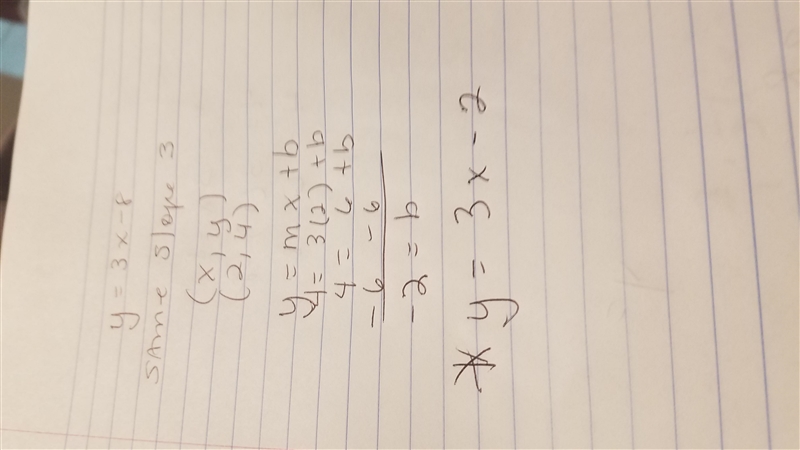 y = 3x-8
SAme Slope 3
(x, y)
(2, 4)
y = mx +b
4 = 3(2) +b
4 = 6 +b
-6 -6
-2 = b
* y = 3x-2